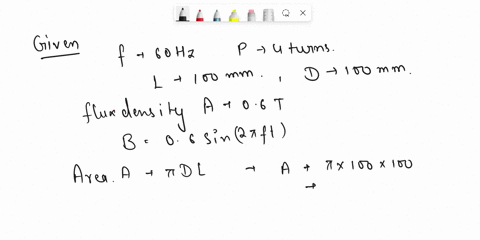 Given f → 60Hz P → 4 turns.
L → 100 mm. , D → 100 mm.
flux density A → 0.6 T
B = 0.6 sin(2πft)
Area. A → πDL → A → π×100×100
→